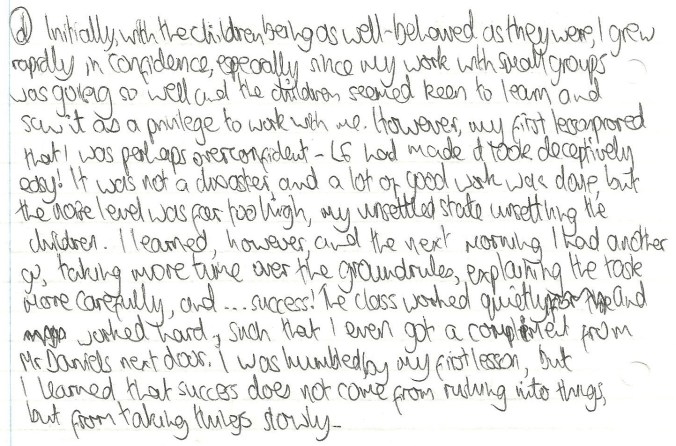 d) Initially, with the children being as well-behaved as they were, I grew
rapidly in confidence, especially since my work with small groups
was going so well and the children seemed keen to learn and
saw it as a privilege to work with me. However, my first lesson proved
that I was perhaps overconfident - LG had made it look deceptively
easy! It was not a disaster, and a lot of good work was done, but
the noise level was far too high, my unsettled state unsettling the
children. I learned, however, and the next morning I had another
go, taking more time over the groundrules, explaining the task
more carefully, and ... success! The class worked quietly and
worked hard, such that I even got a compliment from
Mr Daniels next door. I was humbled by my first lesson, but
I learned that success does not come from rushing into things,
but from taking things slowly.